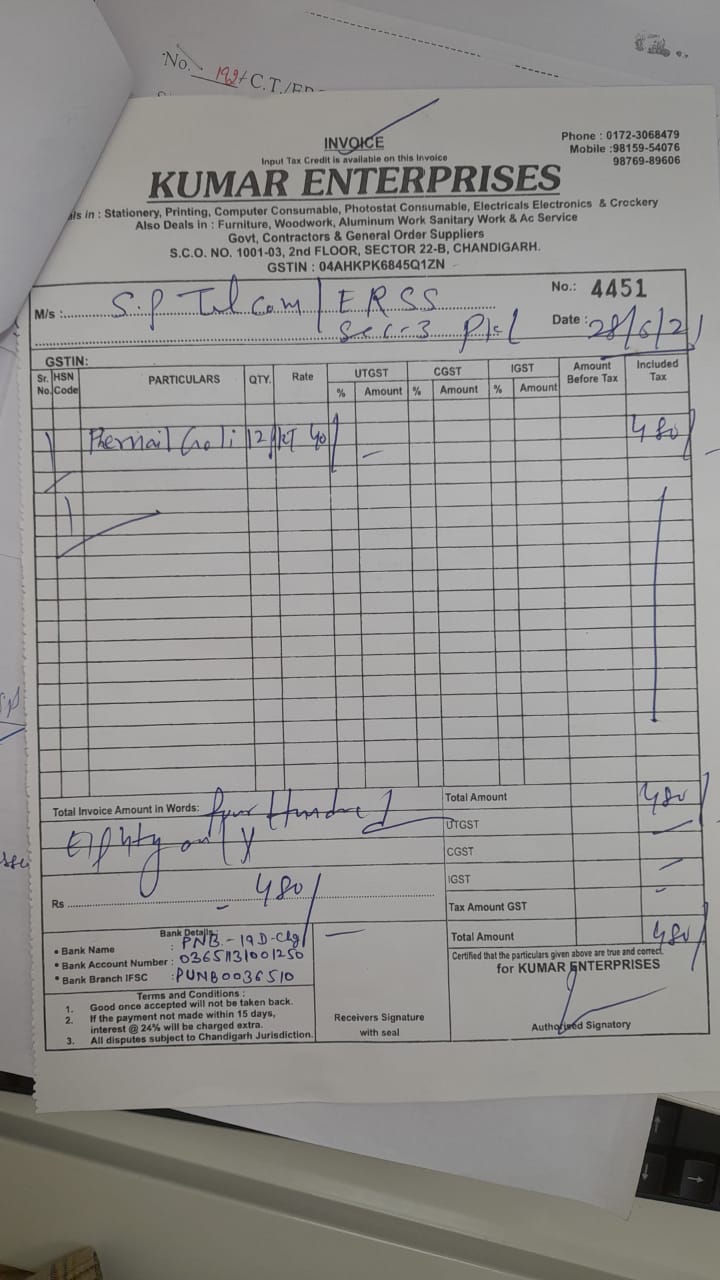 No. 192/C.T./ER
INVOICE
Input Tax Credit is available on this Invoice
Phone : 0172-3068479
Mobile :98159-54076
98769-89606
KUMAR ENTERPRISES
als in : Stationery, Printing, Computer Consumable, Photostat Consumable, Electricals Electronics & Crockery
Also Deals in : Furniture, Woodwork, Aluminum Work Sanitary Work & Ac Service
Govt, Contractors & General Order Suppliers
S.C.O. NO. 1001-03, 2nd FLOOR, SECTOR 22-B, CHANDIGARH.
GSTIN : 04AHKPK6845Q1ZN
M/s :. S.P Telcom / ERSS No.: 4451
Sec-3 Pkl Date : 28/6/21
GSTIN:
Sr. No. HSN Code PARTICULARS QTY. Rate UTGST % Amount CGST % Amount IGST % Amount Amount Before Tax Included Tax
1 Phernail Goli 12 PKT 40/ - 480/
Total Invoice Amount in Words: Four Hundred
Eighty only
Total Amount 480/
UTGST
CGST
IGST
Rs 480/
Tax Amount GST
Total Amount 480/
Bank Details
• Bank Name : PNB.-19D-Chg
• Bank Account Number : 03651131001250
• Bank Branch IFSC : PUNB0036510
Certified that the particulars given above are true and correct.
for KUMAR ENTERPRISES
Terms and Conditions :
1. Good once accepted will not be taken back.
2. If the payment not made within 15 days,
interest @ 24% will be charged extra.
3. All disputes subject to Chandigarh Jurisdiction.
Receivers Signature
with seal
Authorised Signatory